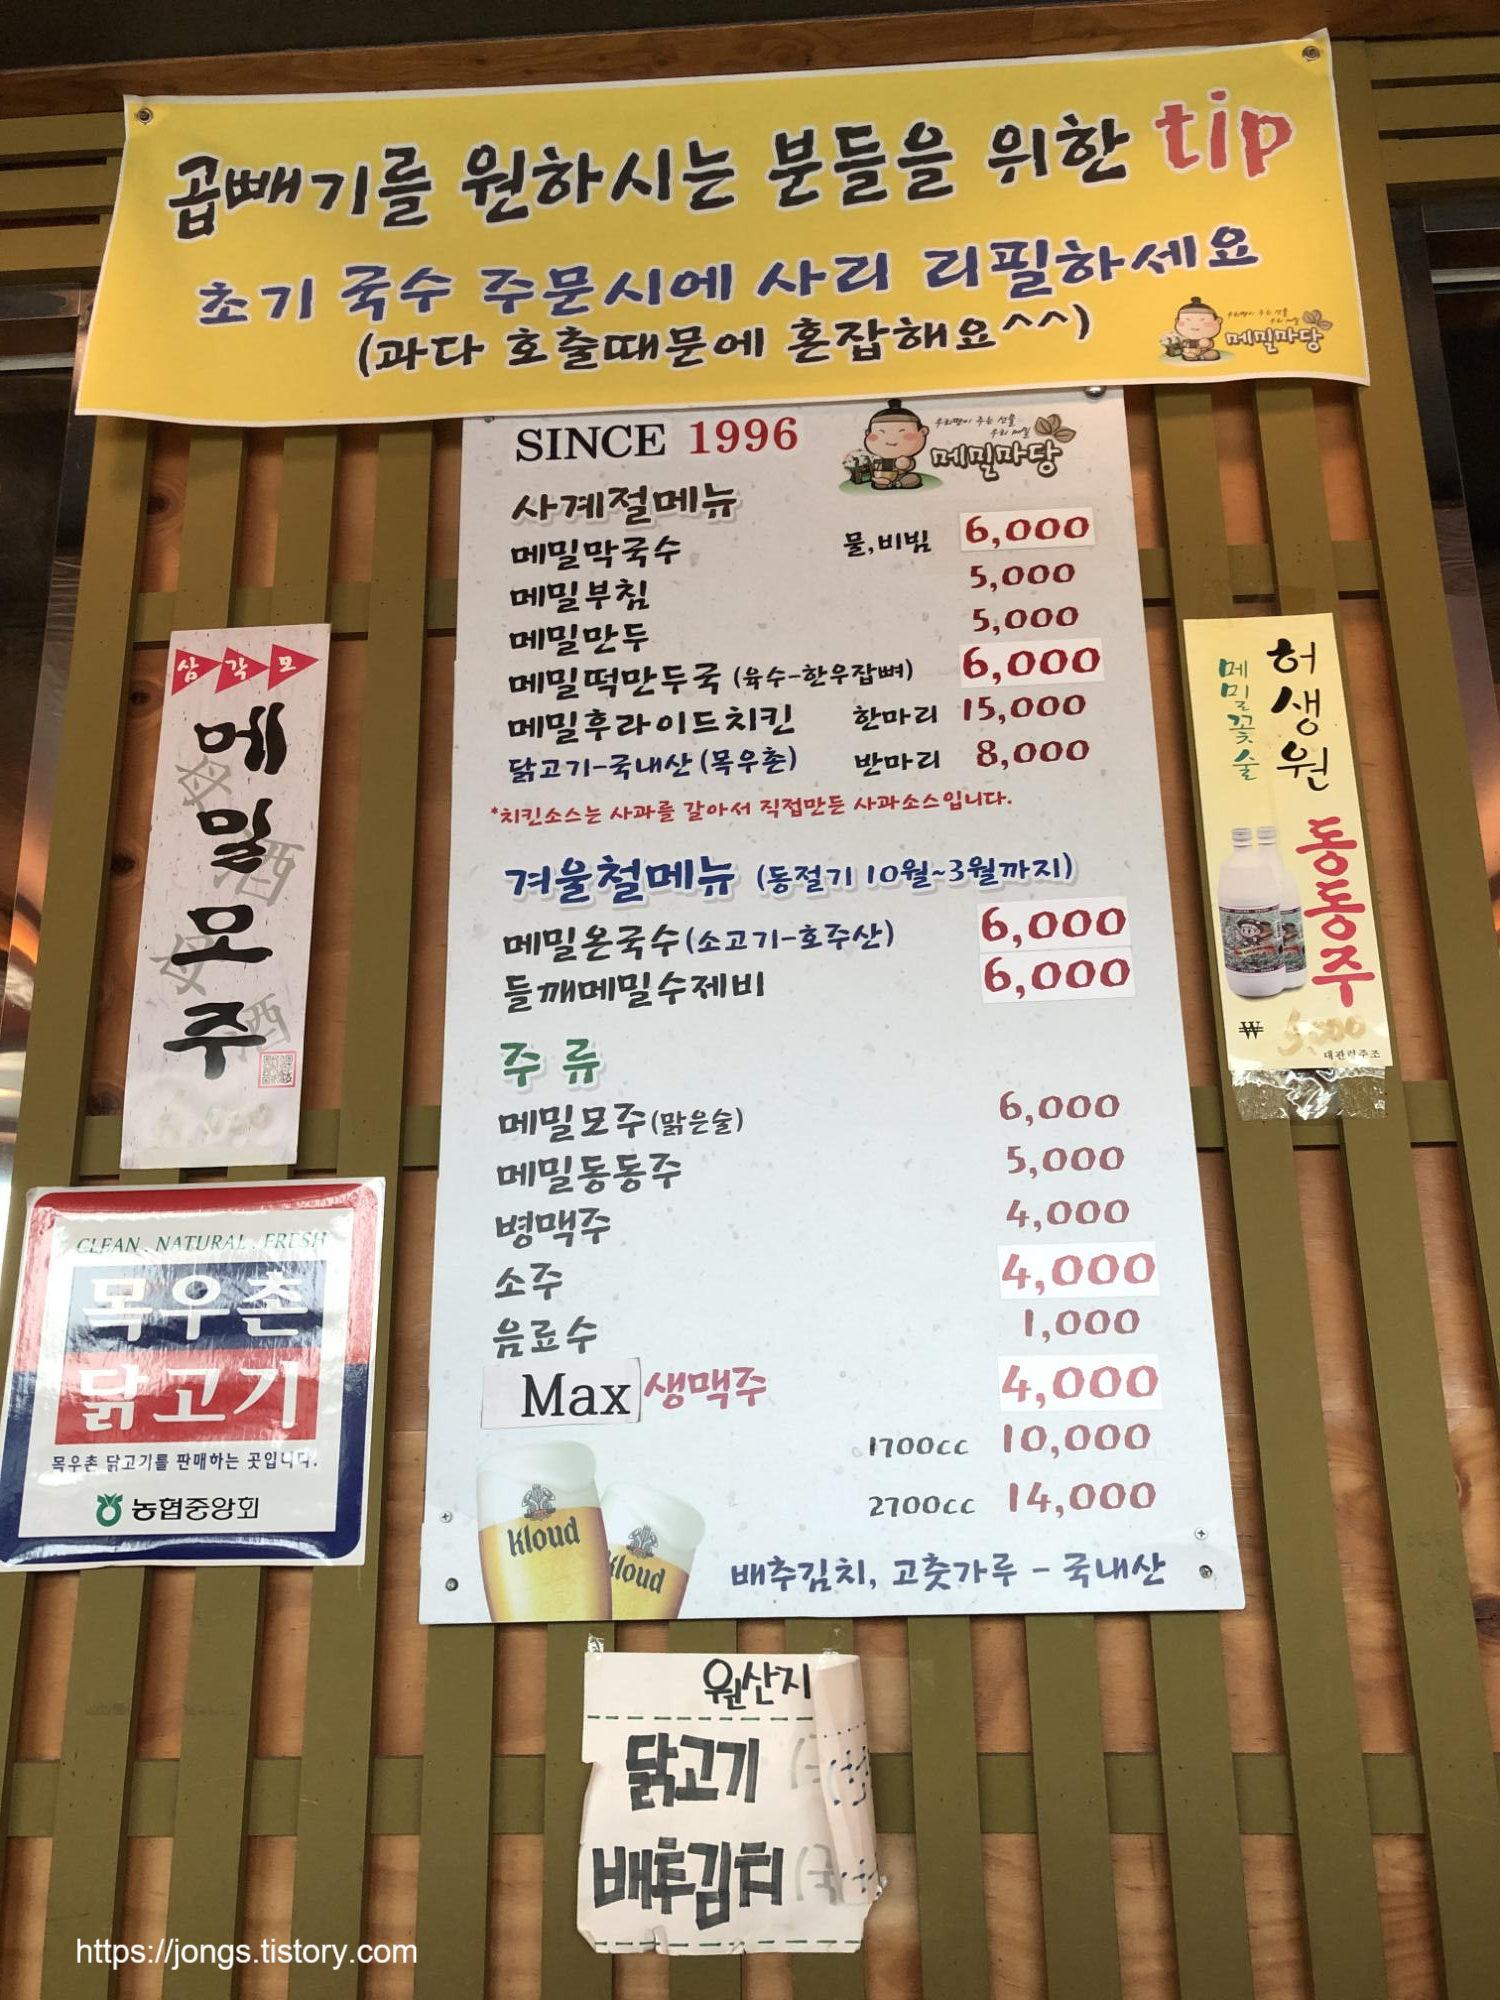 곱빼기를 원하시는 분들을 위한 tip
초기 국수 주문시에 사리 리필하세요
(과다 호출때문에 혼잡해요^^)
메밀마당
SINCE 1996
우리땅이 주는 선물
우리 메밀
메밀마당
사계절메뉴
메밀막국수 물,비빔 6,000
메밀부침 5,000
메밀만두 5,000
메밀떡만두국 (육수-한우잡뼈) 6,000
메밀후라이드치킨 한마리 15,000
닭고기-국내산 (목우촌) 반마리 8,000
*치킨소스는 사과를 갈아서 직접만든 사과소스입니다.
겨울철메뉴 (동절기 10월~3월까지)
메밀온국수(소고기-호주산) 6,000
들깨메밀수제비 6,000
주 류
메밀모주(맑은술) 6,000
메밀동동주 5,000
병맥주 4,000
소주 4,000
음료수 1,000
Max 생맥주 4,000
1700cc 10,000
2700cc 14,000
Kloud
Kloud
배추김치, 고춧가루 - 국내산
삼각모
메밀모주
母酒
母酒
6,000
CLEAN . NATURAL . FRESH
목우촌
닭고기
목우촌 닭고기를 판매하는 곳입니다.
농협중앙회
허생원
메밀꽃술
동동주
₩
대관령주조
원산지
닭고기
배추김치
https://jongs.tistory.com